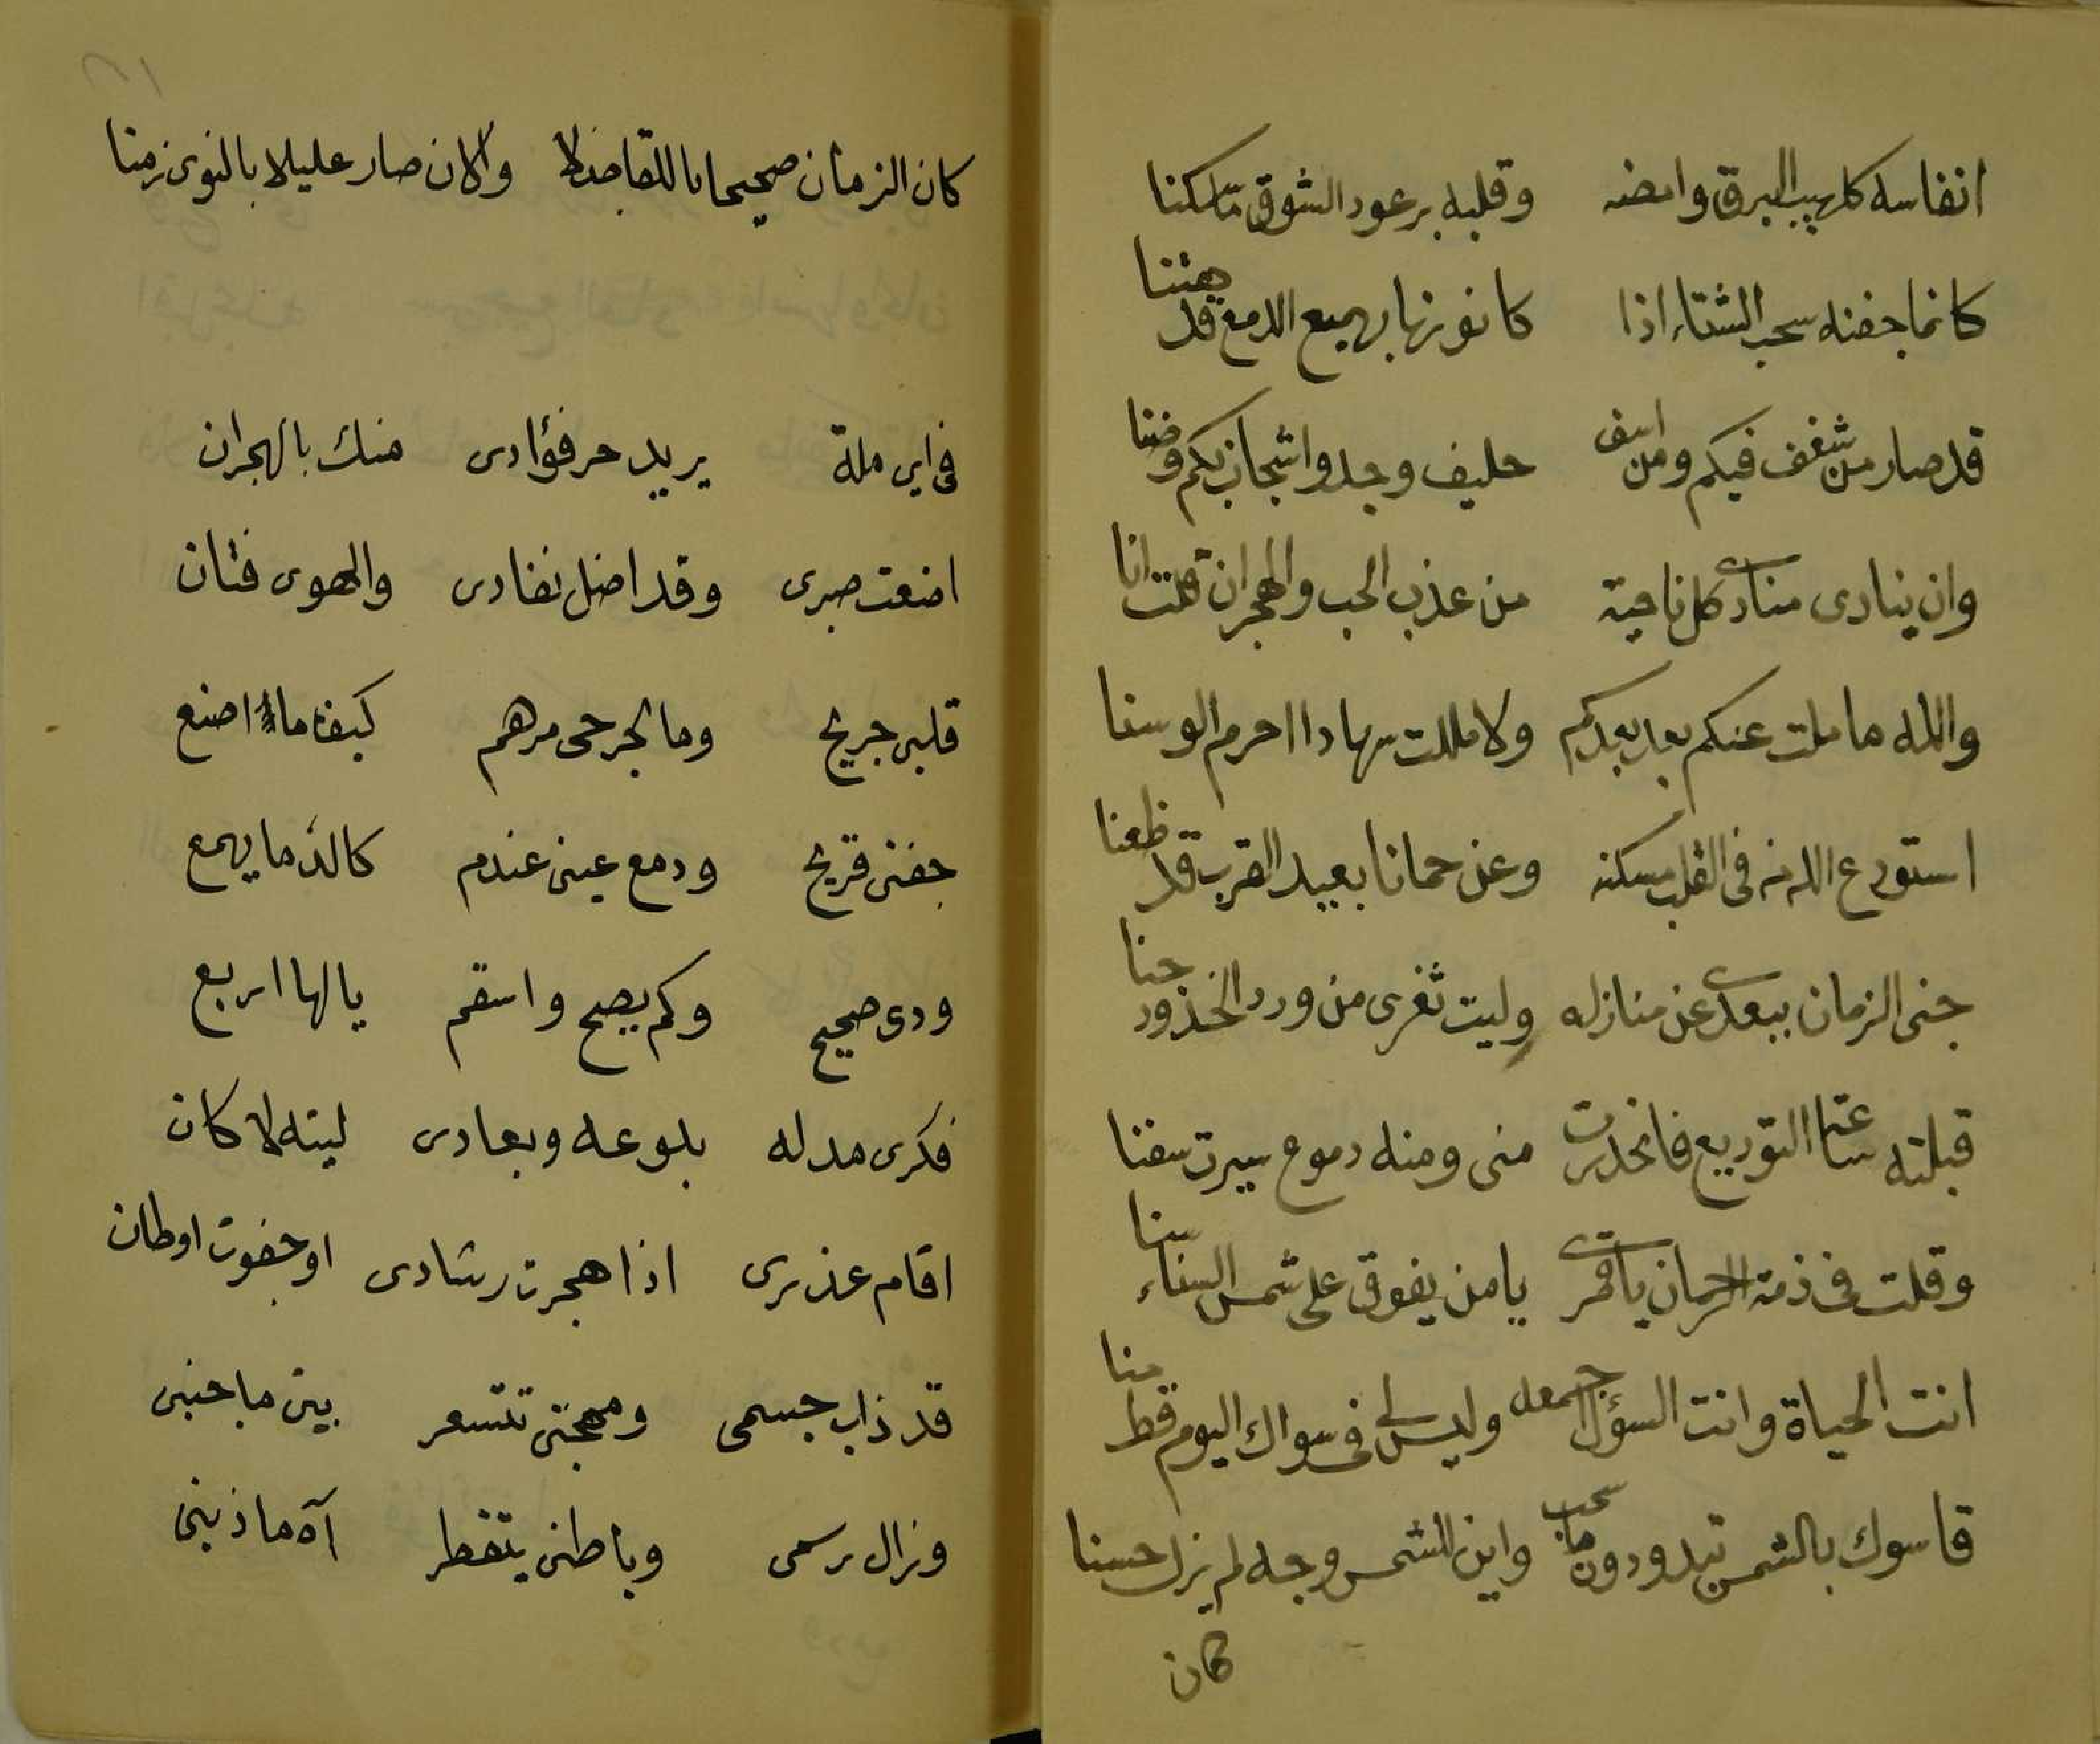 انفاسه كلهيب البرق وامضه وقلبه برعود الشوق ما سكنا
كانما جفنه سحب الشتاء اذا كانونها بهميع الدمع قد هتنا
قد صار من شغف فيكم ومن اسف حليف وجد واشجان بكم وضنا
وان ينادى منادى كل ناحية من عذب الحب والهجران قلت انا
والله ما ملت عنكم بعد بعدكم ولا مللت سهادا احرم الوسنا
استودع الله من فى القلب مسكنه وعن حمانا بعيد القرب قد ظعنا
جنى الزمان ببعدى عن منازله وليت ثغرى من ورد الخدود جنا
قبلته ساعة التوديع فانحدرت منى ومنه دموع سيرت سفنا
وقلت فى ذمة الرحمان يا قمرى يا من يفوق على شمس السناء سنا
انت الحياة وانت السؤل اجمعه وليس لى فى سواك اليوم قط منا
قاسوك بالشمس تبدو دونها سحب واين للشمس وجه لم يزل حسنا
كان
١٢
كان الزمان صحيحا باللقا جذلا والان صار عليلا بالنوى زمنا
فى اى ملة يريد حر فؤادى منك بالهجران
اضعت صبرى وقد اضل نفادى والهوى فتان
قلبى جريح وما لجرحى مرهم كيف ما اصنع
جفنى قريح ودمع عينى عندم كالدما يهمع
ودى صحيح وكم يصح واسقم يا لها اربع
فكرى مدله بلوعه وبعادى ليته لا كان
اقام عذرى اذا هجرت رشادى او جفوت اوطان
قد ذاب جسمى ومهجتى تتسعر بين ما جنبى
وزال رسمى وباطنى يتفطر آه ما ذنبى